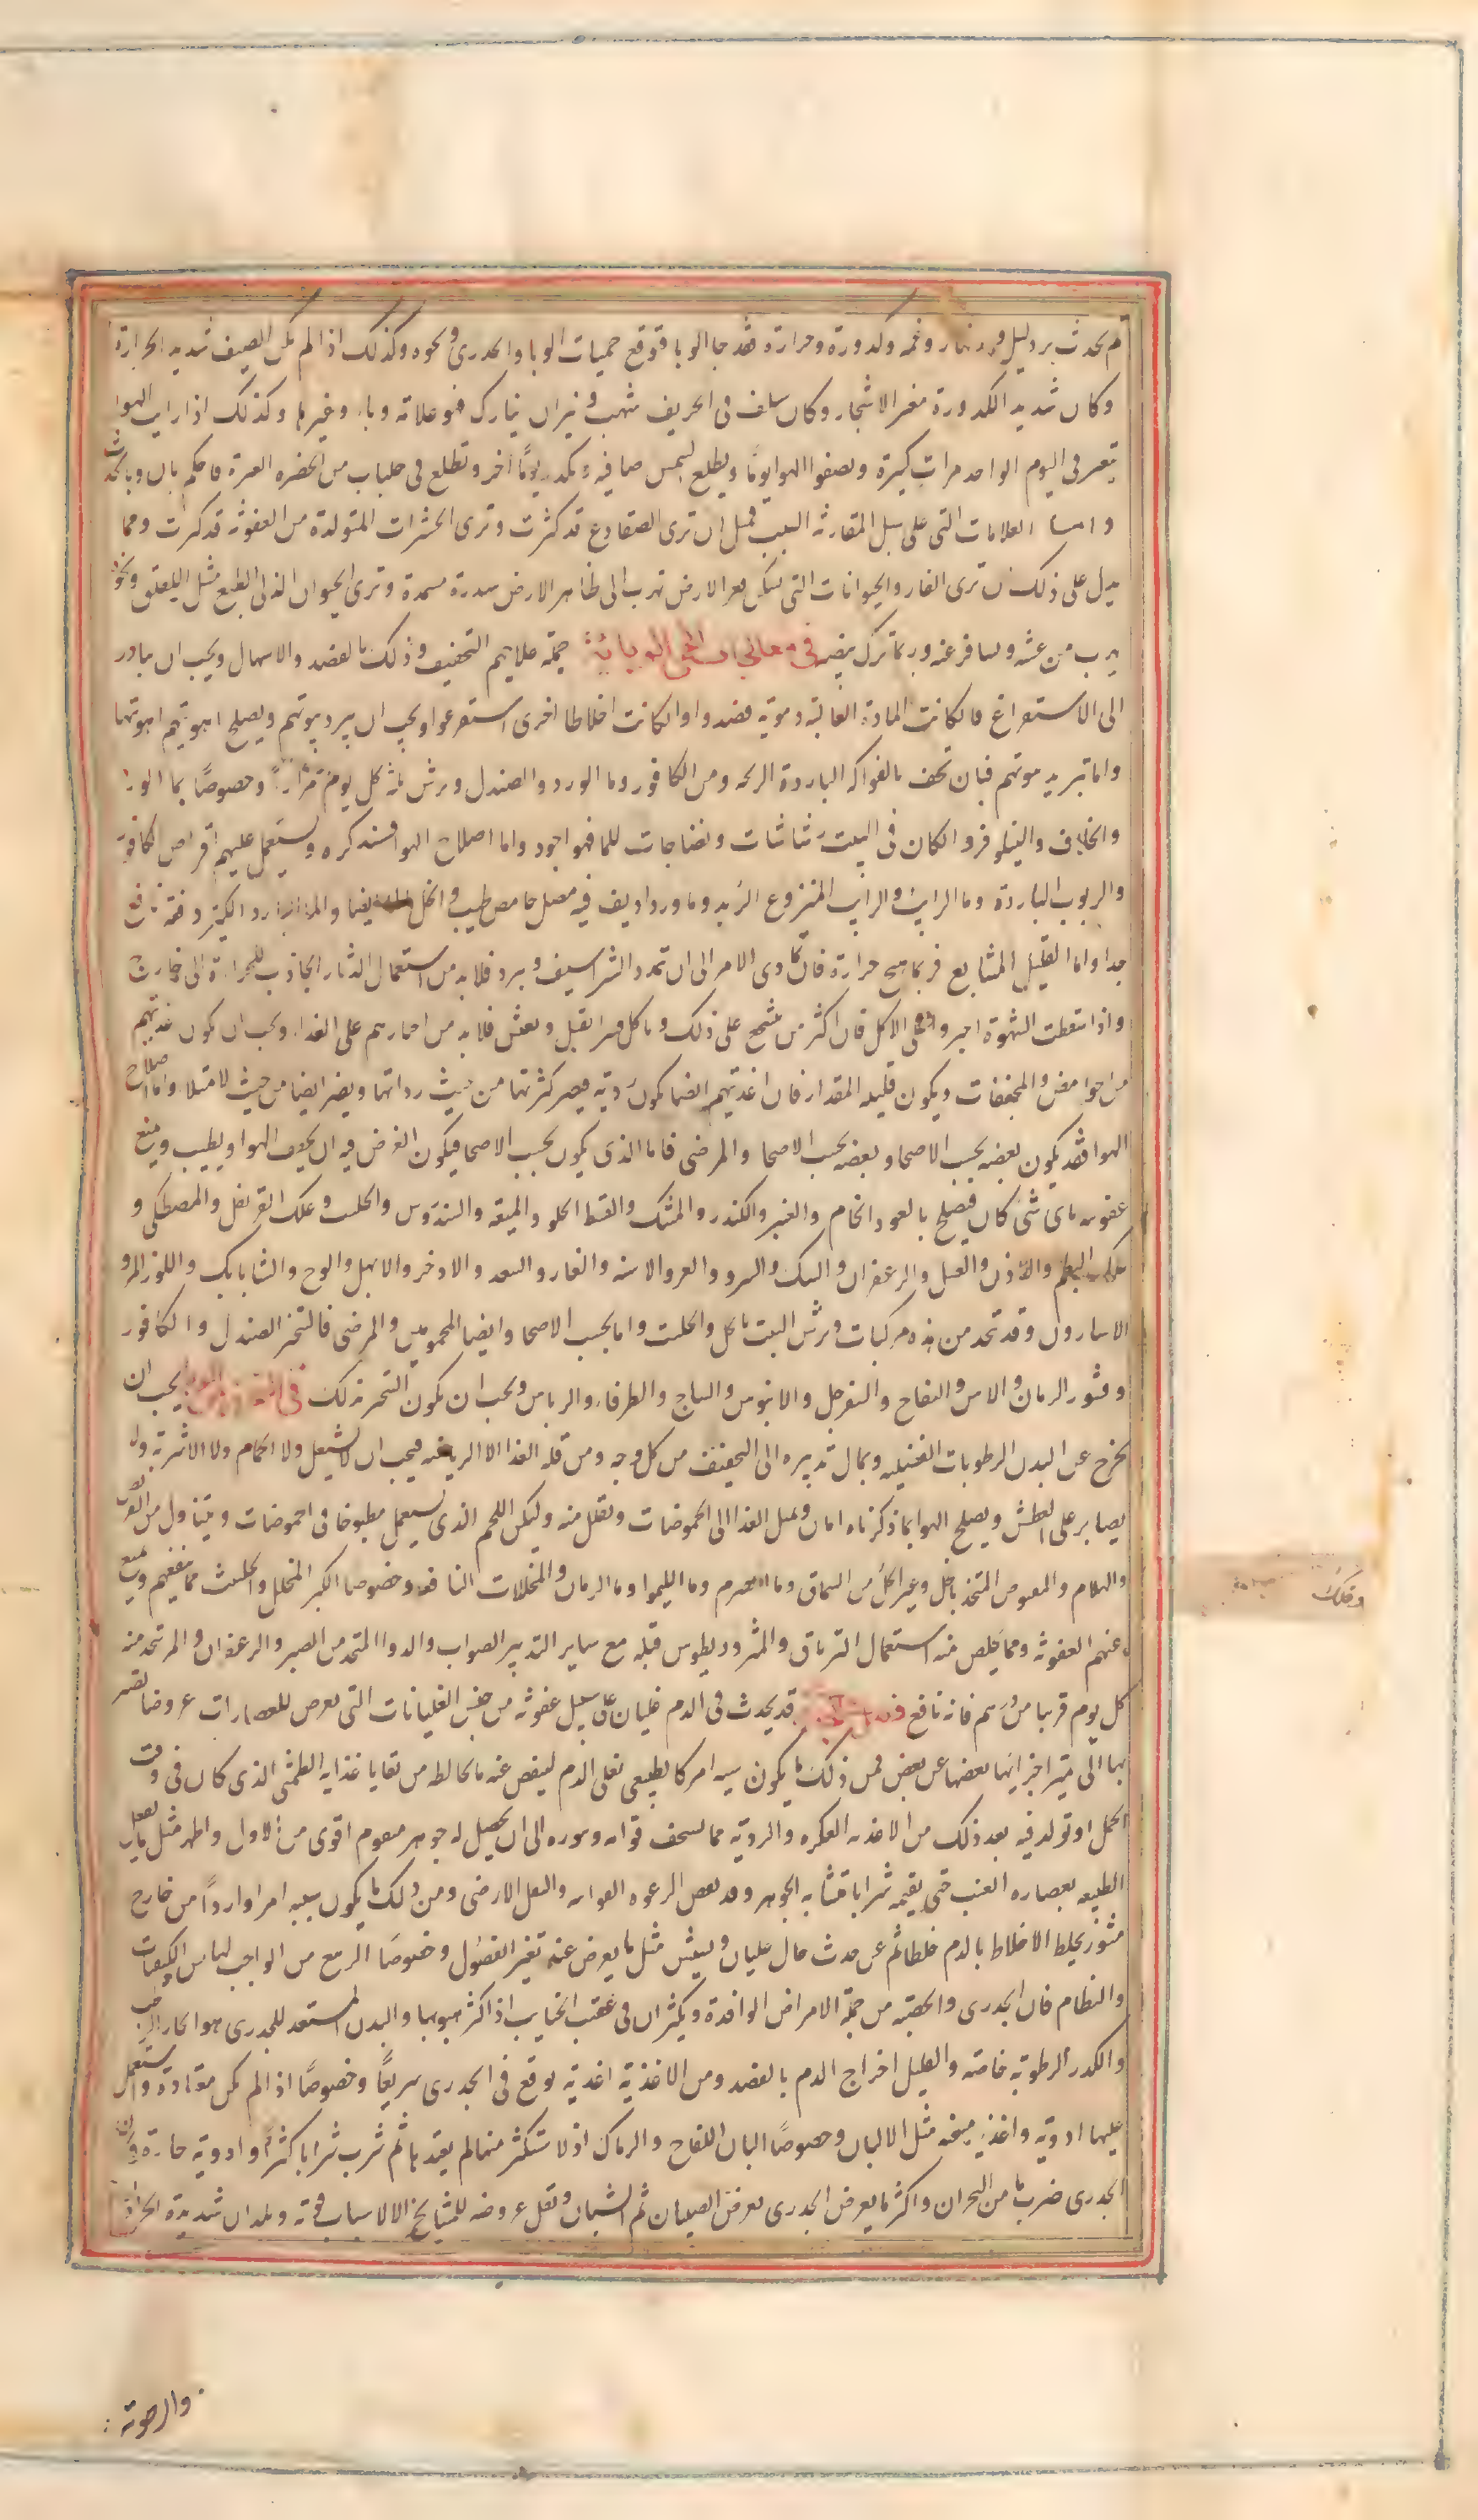 لم يحدث برد ليل و نهار وغمه وكدورة وحرارة فقد جا الوبا فتوقع حميات الوبا والجدرى ونحوه وكذلك اذا لم يكن الصيف شديد الحرارة
وكان شديد الكدورة مغبر الاشجار وكان سلف فى الخريف شهب و نيران نيازك فهو علامة وباء وغيرها وكذلك اذا رايت الهوا
يتغير فى اليوم الواحد مرات كثيرة ويصفوا الهوا يوما ويطلع الشمس صافيه ويكدر يومًا اخر وتطلع فى جلباب من الغبره فاحكم بان وبا يحدث
و اما العلامات التى على سبيل المقارنة السبب فمثل ان ترى الضفادع قد كثرت وترى الحشرات المتولدة من العفونة قد كثرت ومما
يدل على ذلك ان ترى الفار والحيوانات التى تسكن قعر الارض تهرب الى ظاهر الارض سدرة مسمدة وترى الحيوان الذكى الطبع مثل اللقلق ونحوه
يهرب من عشه ويسافر عنه وربما ترك بيضه فى معالجات الحمى الوبائية جملة علاجهم التجفيف وذلك بالفصد والاسهال ويجب ان يبادر
الى الاستفراغ فان كانت المادة الغالبة دموية فصدوا وان كانت اخلاطا اخرى استفرغوا ويجب ان يبرد بيوتهم ويصلح اهويتهم
واما تبريد بيوتهم فبان تحف بالفواكه الباردة الريحه ومن الكافور وما الورد والصندل ويرش كل يوم مرارًا وخصوصًا بما الورد
والخلاف والنيلوفر وان كان فى البيت رشاشات ونضاحات للما فهو اجود واما اصلاح الهوا فسنذكره ويستعمل عليهم اقراص الكافور
والربوب الباردة وما الرايب والرايب المنزوع الزبد وما ورد اديف فيه مصل حامض طيب والخل ايضا والماء البارد الكثير دفعة نافع
جدا واما القليل المتتابع فربما هيج حرارة فان تمادى الامر الى ان تمدد الشراسيف وبرد فلا بد من استعمال الدثار الجاذب للحرارة الى خارج
واذا سقطت الشهوة اجبروا على الاكل فان اكثر من يتشجع على ذلك وياكل قسرا يقبل ويعش فلا بد من اجبارهم على الغذاء ويجب ان يكون غذيتهم
من الحوامض والمجففات ويكون قليله المقدار فان اغذيتهم ايضا يكون ردية فيضر كثرتها من حيث رداتها ويضر ايضا من حيث الامتلا واما اصلاح
الهوا فقد يكون بعضه بحسب الاصحا وبعضه بحسب الاصحا والمرضى فاما الذى يكون بحسب الاصحا فيكون الغرض فيه ان يجفف الهوا ويطيب ويمنع
عفونته باى شئ كان فيصلح بالعود الخام والعنبر والكندر والمسك والقسط الحلو والميعة والسندروس والحلتيت وعلك القرنفل والمصطكى و
علك البطم واللاذن والعسل والزعفران والسك والسرو والعرعر والاشنه والغار والسعد والاذخر والابهل والوج والشابابك واللوز المر و
الاسارون وقد تتخذ من هذه مركبات ويرش البيت بالخل والحلتيت واما بحسب الاصحا وايضا المحمومين والمرضى فالتبخر الصندل والكافور
وقشور الرمان والاس والتفاح والسفرجل والابنوس والساج والطرفاء والريباس ويجب ان يكون التبخر بذلك فى التحرز من الوبا يجب ان
يخرج عن البدن الرطوبات الفضليه ويمال تدبيره الى التجفيف من كل وجه ومن قلة الغذا الا الرياضه فيجب ان لا يستعمل ولا الحمام ولا الاشربة ولا
يصابر على العطش ويصلح الهوا بما ذكرناه ويمال الغذا الى الحموضات ويقلل منه وليكن اللحم الذى يستعمل مطبوخا فى الحموضات ويتناول من
والهلام والمصوص المتخذ بالخل وغير الخل من السماق وما الحصرم وما الليموا وما الرمان والمخللات النافعة وخصوصا الكبر المخلل والحلتيت مما ينفعهم ويمنع
عنهم العفونة ومما يخلص منه استعمال الترياق والمثروديطوس قبله مع ساير التدبير الصواب والدوا المتخذ من الصبر والزعفران والمر تتخذ منه
كل يوم قريبا من درهم فانه نافع قد يحدث فى الدم غليان على سبيل عفونة من جنس الغليانات التى تعرض للعصارات عروضا تصير
بها الى تميز اجزايها بعضها عن بعض فمن ذلك ما يكون سببه امر كالطبيعى يغلى الدم لينفض عنه ما يخالطه من بقايا غذايه الطمثى الذى كان فى وقت
الحمل او تولد فيه بعد ذلك من الاغذيه العكره والردية مما يسخف قوامه ويثوره الى ان يحصل له جوهر متقوم اقوى من الاول واظهر مثل ما يفعل
الطبيعه بعصارة العنب حتى يقيمه شرابا متشابه الجوهر وقد نفض الرغوة الهوائيه والثفل الارضى ومن ذلك ما يكون سببه امرا واردًا من خارج
مثور يخلط الاخلاط بالدم خلطا ثم عن حدث حال غليان ونشيش مثل ما يعرض عند تغير الفصول وخصوصًا الربيع من الواجب
والنظام فان الجدرى والحصبه من جملة الامراض الوافدة ويكثران فى عقب الجنايب اذا كثر هبوبها والبدن المستعد للجدرى هو الحار الرطب
والكدر الرطوبة خاصة والقليل اخراج الدم بالفصد ومن الاغذية اغذية توقع فى الجدرى سريعًا وخصوصًا اذا لم تكن معتادة واستعمل
عليها ادوية واغذية مسخنه مثل الالبان وخصوصًا البان اللقاح والرماك اذا استكثر منها من لم يعتدها ثم شرب شرابا كثيرا وادوية حارة وكان
الجدرى ضرب ما من البحران واكثر ما يعرض الجدرى يعرض الصبيان ثم الشبان وتقل عروضه للمشايخ الا لاسباب قوية وبلدان شديدة الحرارة
والرطوبة